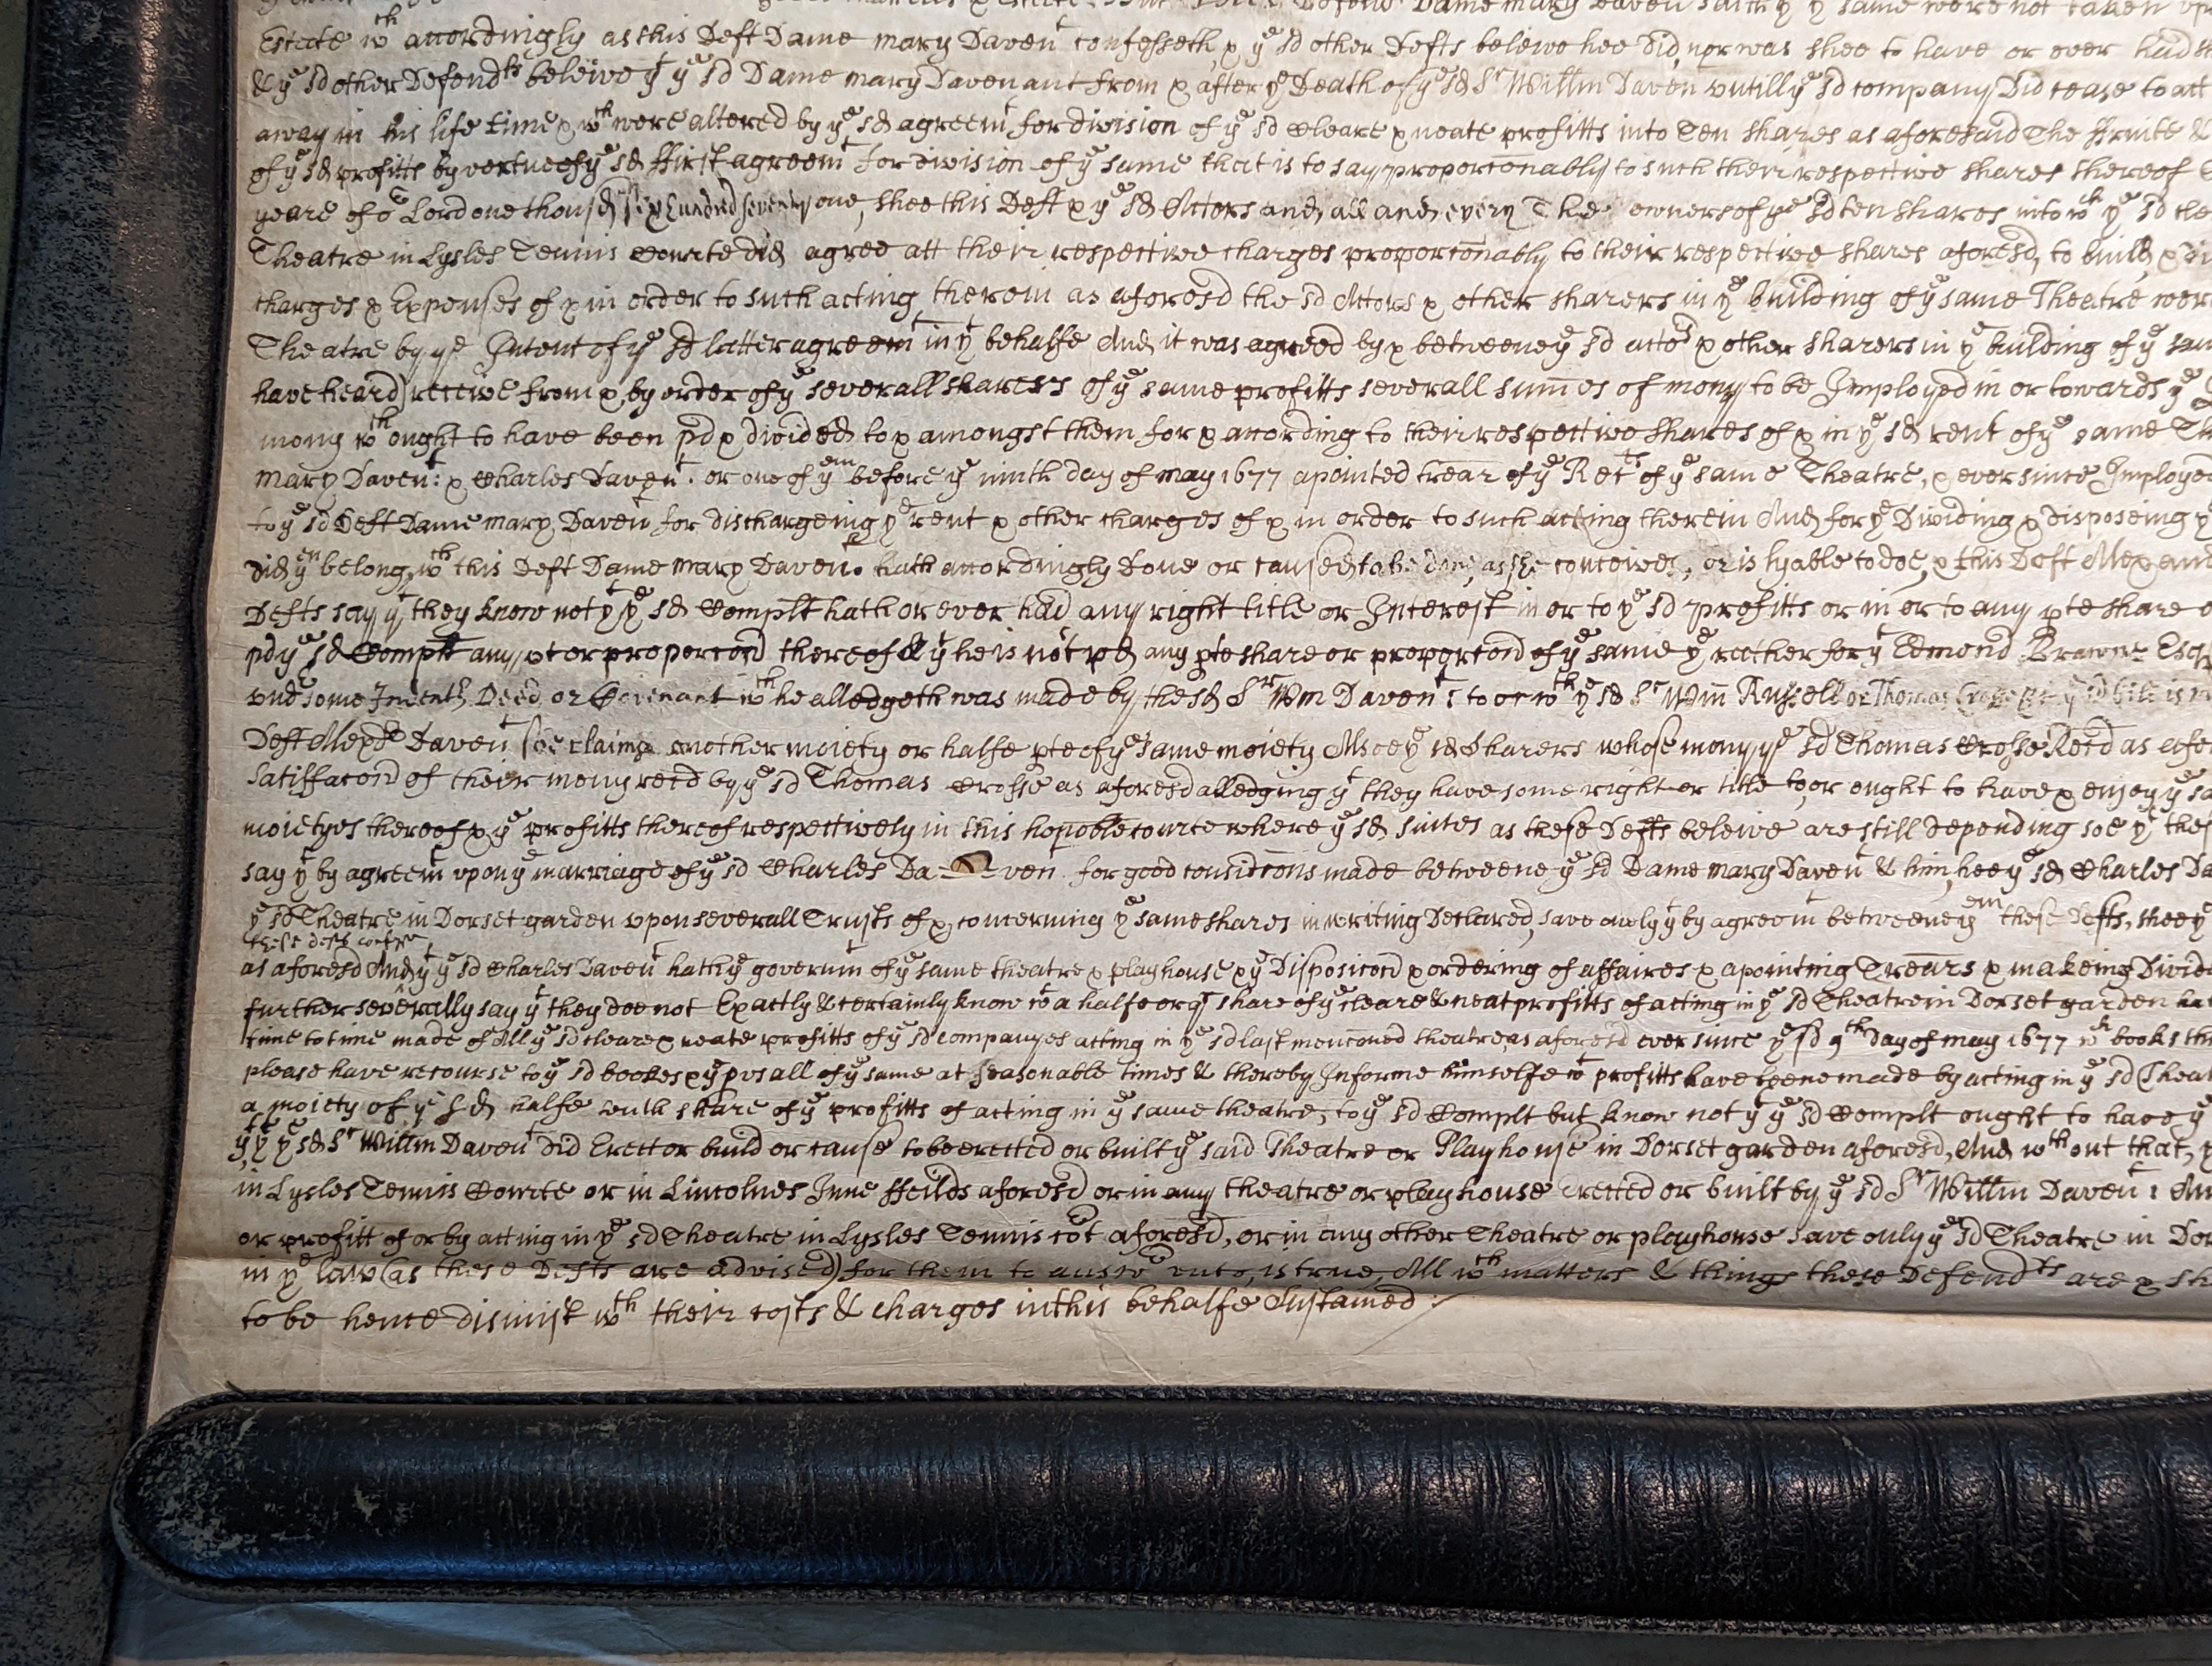 Defend Dame Mary Daven saith yt ye same were not taken
Estate wch accordingly as this Deft Dame Mary Davent confesseth, & ye sd other Defts beleive hee did, nor was shee to have or ever had
& ye sd other Defendts beleive yt ye sd Dame Mary Davenant from & after ye Death of ye sd Sr Willm Daven untill ye sd company Did cease to act
away in his life time & wch were altered by ye sd agreemt for division of ye sd cleare & neate profitts into Ten shares as aforesaid The ffruite &
of ye sd profitts by vertue of ye sd ffirst agreemt for division of ye same that is to say proporconably to such their respective shares thereof
yeare of or Lord one thousd six hundred seventy one, shee this Deft & ye sd Actors and all and every The owners of ye sd ten shares into wch ye sd
Theatre in Lysles Tennis Courte did agree att their respective charges proporconably to their respective shares aforesd, to build, &
charges & Expenses of & in order to such acting therein as aforesd the sd Actors & other sharers in ye building of ye same Theatre
Theatre by ye Intent of ye sd latter agreemt in yt behalfe And it was agreed by & betweene ye sd actors & other sharers in ye building of ye
have heard) receive from & by order of ye severall sharers of ye same profitts severall summes of mony to be Imployed in or towards ye
mony wch ought to have been pd & divided to & amongst them for & according to their respective shares of & in ye sd rent of ye same
Mary Davent: & Charles Davent. or one of yem before ye ninth day of May 1677 apointed trear of ye Rects of ye same Theatre, & ever since Imployed
to ye sd Deft Dame Mary Daven for dischargeing ye rent & other charges of & in order to such acting therein And for ye Dividing & disposeing
did yen belong, wch this Deft Dame Mary Davent. hath accordingly Done or caused to be done, as she conceives, or is lyable to doe, & this Deft
Defts say yt they know not yt ye sd Complt hath or ever had any right title or Interest in or to ye sd profitts or in or to any pte share
pd ye sd Complt any pt or proporcond thereof & yt he is not pd any pte share or proporcond of ye same ye rather for yt Edmond Browne Esqr
und some Indentr Deed or Covenant wch he alledgeth was made by the sd Sr Wm Davent: to or wth ye sd Sr Wm Russell or Thomas Crosse ye sd bill is
Deft Alexdr Davent claims another moiety or halfe pte of ye same moiety Alsoe ye sd Sharers whose mony ye sd Thomas Crosse Recd as
Satisfacond of their mony recd by ye sd Thomas Crosse as aforesd alledging yt they have some right or title to, or ought to have & enjoy ye
moietyes thereof & ye profitts thereof respectively in this honoble courte where ye sd suites as these Defts beleive are still depending soe yt
say yt by agreemt upon ye marriage of ye sd Charles Da- -ven for good considcons made betweene ye sd Dame Mary Davent & him, hee ye sd Charles
ye sd Theatre in Dorset garden upon severall Trusts of & concerning ye same shares in writing Declared, save onely yt by agreemt betweene yem these Defts, shee ye
these defts confesse
as aforesd And yt ye sd Charles Davent hath ye governmt of ye same theatre & playhouse & ye Disposicond & ordering of affaires & apointing Trears & makeing
further severally say yt they doe not Exactly & certainly know wt a halfe or qr share of ye cleare & neat profitts of acting in ye sd Theatre in Dorset garden
time to time made of All ye sd cleare & neate profitts of ye sd companyes acting in ye sd last mencioned theatre, as aforesd ever since ye sd 9th Day of May 1677 wch books
please have recourse to ye sd bookes & ye pusall of ye same at seasonable times & thereby Informe himselfe wt profitts have beene made by acting in ye sd
a moiety of ye sd halfe share of ye profitts of acting in ye same theatre, to ye sd Complt but know not yt ye sd Complt ought to have
yt ye sd Sr Willm Davent did Erect or build or cause to be erected or built ye said Theatre or Playhouse in Dorset garden aforesd, And wthout that,
in Lysles Tennis Courte or in Lincolnes Inne ffeilds aforesd or in any theatre or playhouse Erected or built by ye sd Sr Willm Davent:
or profitt of or by acting in ye sd Theatre in Lysles Tennis cot aforesd, or in any other Theatre or playhouse save only ye sd Theatre in
in ye law (as these Defts are advised) for them to answr unto, is true, All wch matters & things these Defendts are &
to be hence dismist wth their costs & charges in this behalfe Sustained